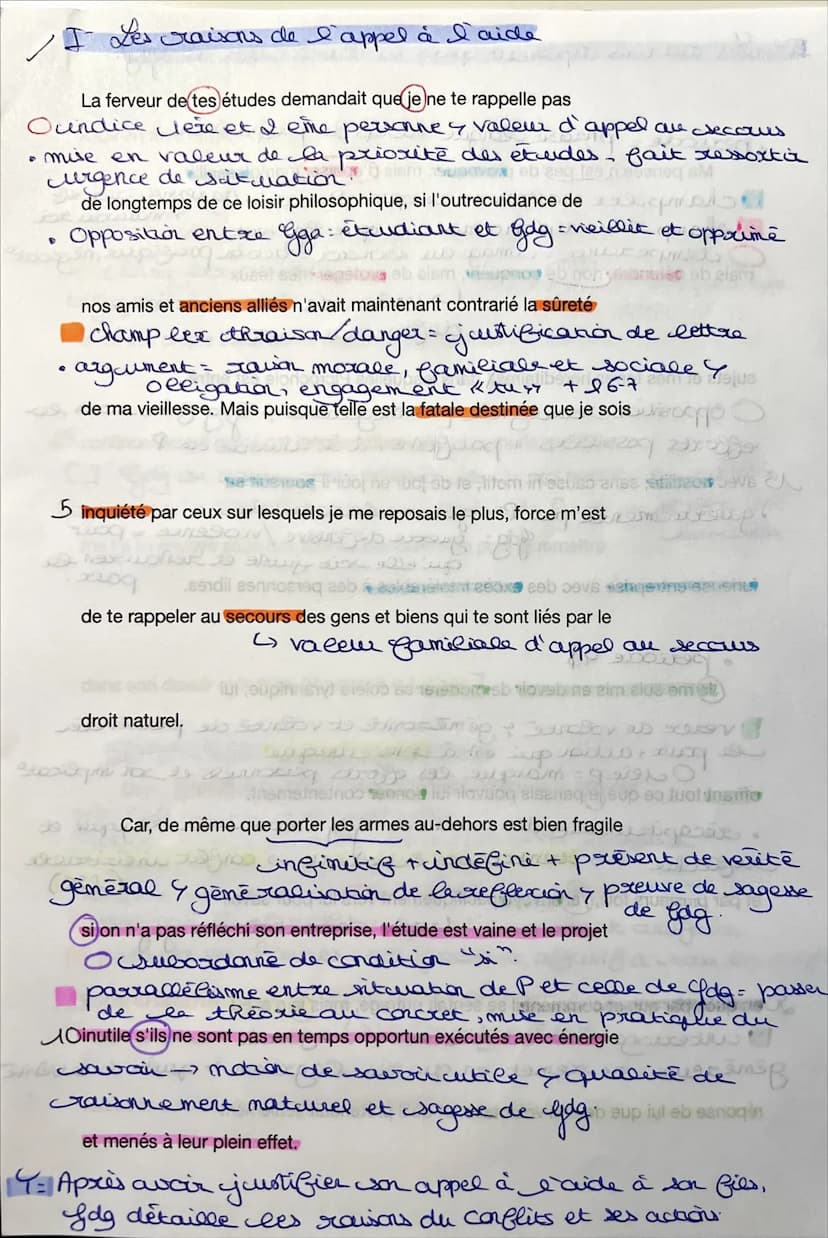 I- Les raisons de l'appel à l'aide
La ferveur de tes études demandait que je ne te rappelle pas
indice 1ère et 2 ème personne ↳ valeur d'appel au secours
• mise en valeur de la priorité des études - fait ressortir
urgence de situation.
de longtemps de ce loisir philosophique, si l'outrecuidance de
• Opposition entre Gga = étudiant et Gdg = vieillit et opprimé
nos amis et anciens alliés n'avait maintenant contrarié la sûreté
champ lex thraison/danger = justification de lettre
• argument = raison morale, familiale et sociale ↳
obligation, engagement « tu » + l 6-7
de ma vieillesse. Mais puisque telle est la fatale destinée que je sois
5 inquiété par ceux sur lesquels je me reposais le plus, force m'est
de te rappeler au secours des gens et biens qui te sont liés par le
↳ valeur familiale d'appel au secours
droit naturel.
Car, de même que porter les armes au-dehors est bien fragile
infinitif + indéfini + présent de vérité
général ↳ généralisation de la reflexion ↳ preuve de sagesse
de Gdg.
si on n'a pas réfléchi son entreprise, l'étude est vaine et le projet
subordonné de condition "si".
parrallélisme entre situation de P et celle de Gdg = passer
de la théorie au concret, mise en pratique du
10 inutile s'ils ne sont pas en temps opportun exécutés avec énergie
savoir → notion de savoir utile ↳ qualité de
raisonnement naturel et sagesse de Gdg
et menés à leur plein effet.
T= Après avoir justifier son appel à l'aide à son fils,
Gdg détaille les raisons du conflits et ses actions.